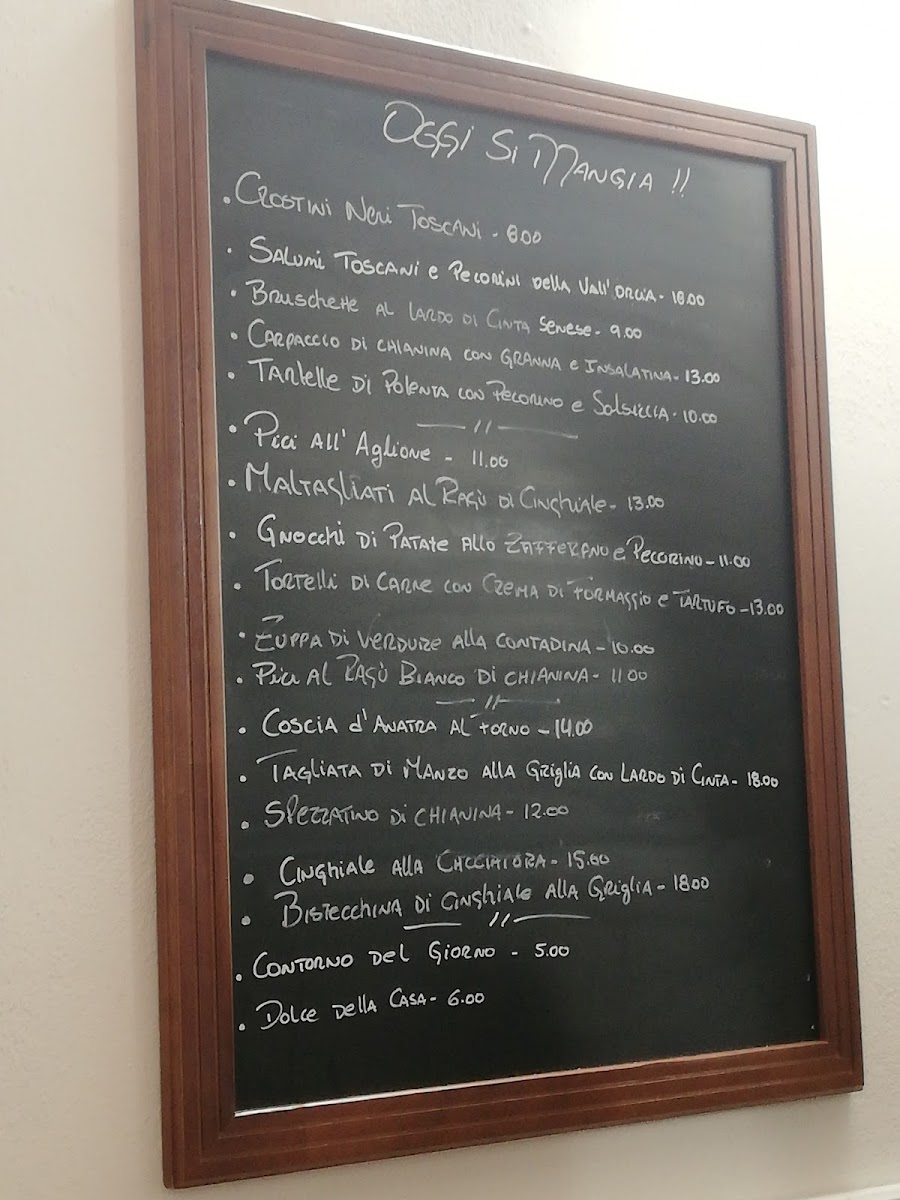 OGGI SI MANGIA !!
• CROSTINI NERI TOSCANI - 8.00
• SALUMI TOSCANI e PECORINI della VALL'ORCIA - 18.00
• BRUSCHETTE AL LARDO DI CINTA SENESE - 9.00
• CARPACCIO DI CHIANINA CON GRANNA e INSALATINA - 13.00
• TARTELLE DI POLENTA CON PECORINO e SALSICCIA - 10.00
— // —
• PICI ALL' AGLIONE - 11.00
• MALTAGLIATI AL RAGÙ DI CINGHIALE - 13.00
• GNOCCHI DI PATATE ALLO ZAFFERANO e PECORINO - 11.00
• TORTELLI DI CARNE CON CREMA DI FORMAGGIO e TARTUFO - 13.00
• ZUPPA DI VERDURE ALLA CONTADINA - 10.00
• PICI AL RAGÙ BIANCO DI CHIANINA - 11.00
— // —
• COSCIA d'ANATRA AL FORNO - 14.00
• TAGLIATA DI MANZO ALLA GRIGLIA CON LARDO DI CINTA - 18.00
• SPEZZATINO DI CHIANINA - 12.00
• CINGHIALE ALLA CACCIATORA - 15.00
• BISTECCHINA DI CINGHIALE ALLA GRIGLIA - 18.00
— // —
• CONTORNO DEL GIORNO - 5.00
• DOLCE DELLA CASA - 6.00